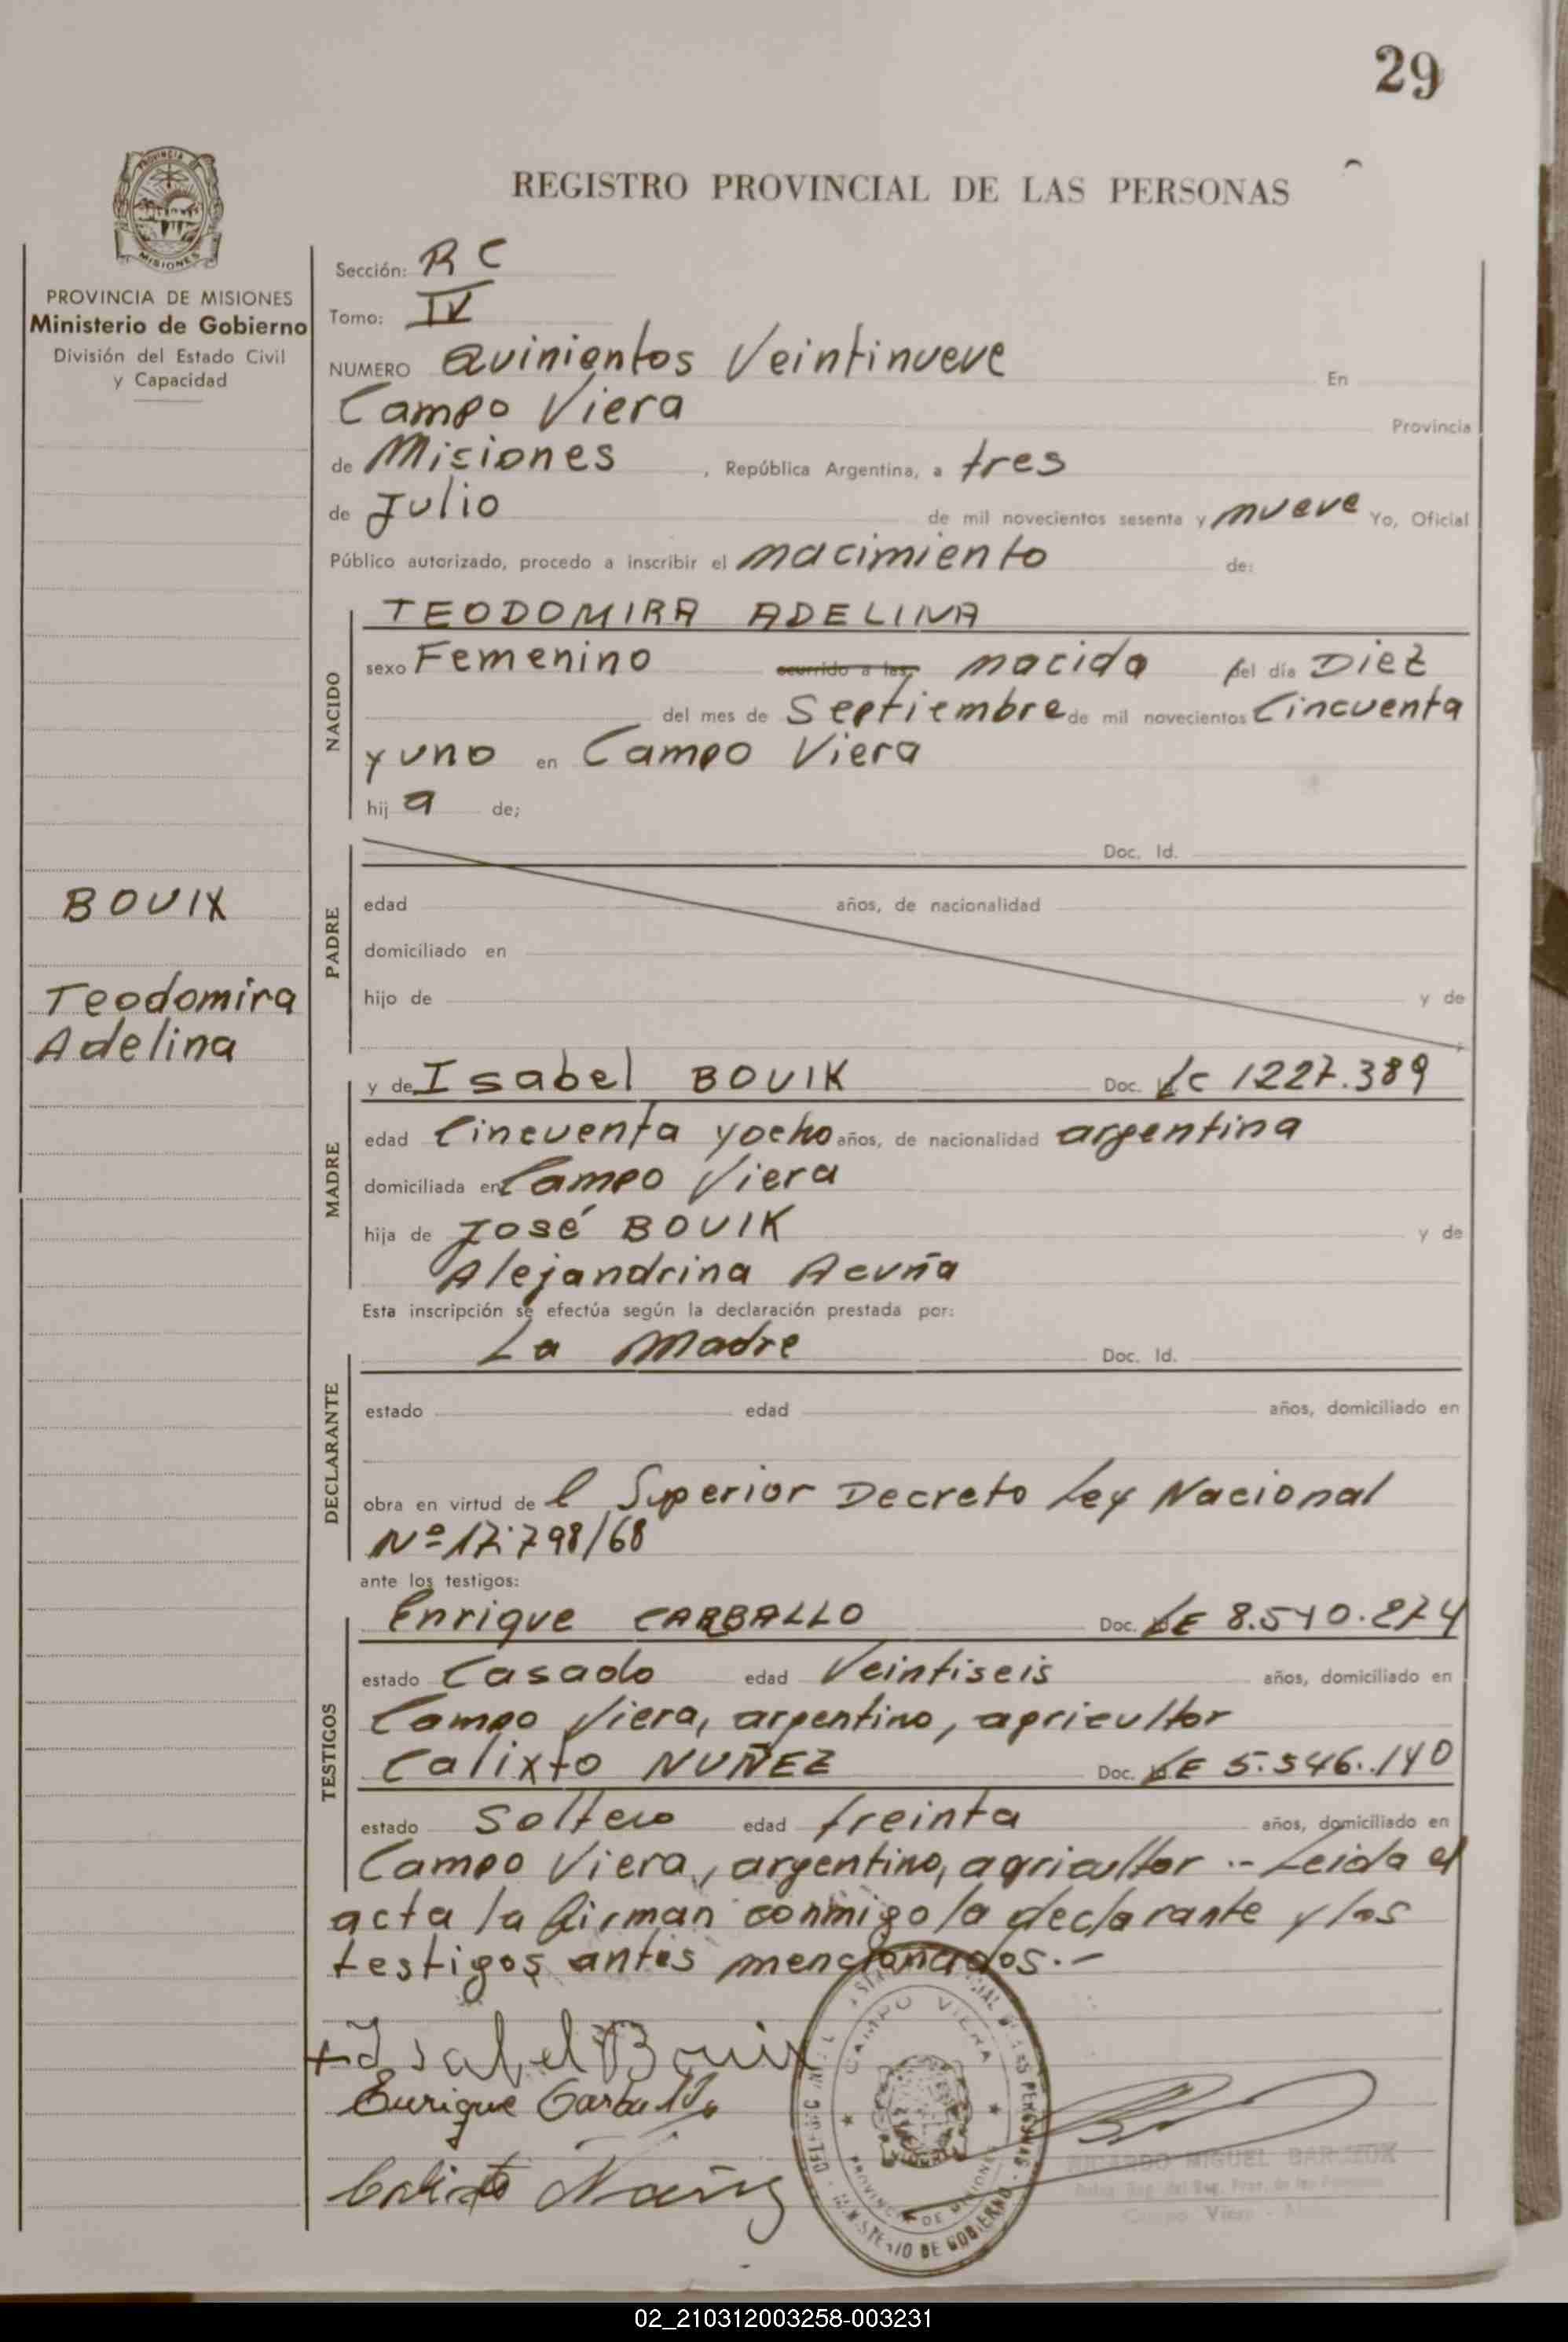 29
REGISTRO PROVINCIAL DE LAS PERSONAS
PROVINCIA DE MISIONES
Ministerio de Gobierno
División del Estado Civil
y Capacidad
Sección: RC
Tomo: IV
NUMERO Quinientos Veintinueve En
Campo Viera Provincia
de Misiones , República Argentina, a tres
de Julio de mil novecientos sesenta y nueve Yo, Oficial
Público autorizado, procedo a inscribir el nacimiento de:
NACIDO
TEODOMIRA ADELINA
sexo Femenino ocurrido a las nacida el día Diez
del mes de Septiembre de mil novecientos Cincuenta
y uno en Campo Viera
hij a de;
BOUIX
Teodomira
Adelina
PADRE
Doc. Id.
edad años, de nacionalidad
domiciliado en
hijo de y de
MADRE
y de Isabel BOUIK Doc. LC 1227.389
edad Cincuenta y ocho años, de nacionalidad argentina
domiciliada en Campo Viera
hija de José BOUIK y de
Alejandrina Acuña
Esta inscripción se efectúa según la declaración prestada por:
DECLARANTE
La Madre Doc. Id.
estado edad años, domiciliado en
obra en virtud de l Superior Decreto Ley Nacional
Nº 17.798/68
ante los testigos:
TESTIGOS
Enrique CARBALLO Doc. LE 8.540.274
estado Casado edad Veintiseis años, domiciliado en
Campo Viera, argentino, agricultor
Calixto NUÑEZ Doc. LE 5.546.140
estado Soltero edad treinta años, domiciliado en
Campo Viera, argentino, agricultor .- Leida el
acta la firman conmigo la declarante y los
testigos antes mencionados.-
+ Isabel Bouix
Enrique Carballo
Calixto Nuñez
CAMPO VIERA
PROVINCIA DE MISIONES
MINISTERIO DE GOBIERNO
MIGUEL
02_210312003258-003231